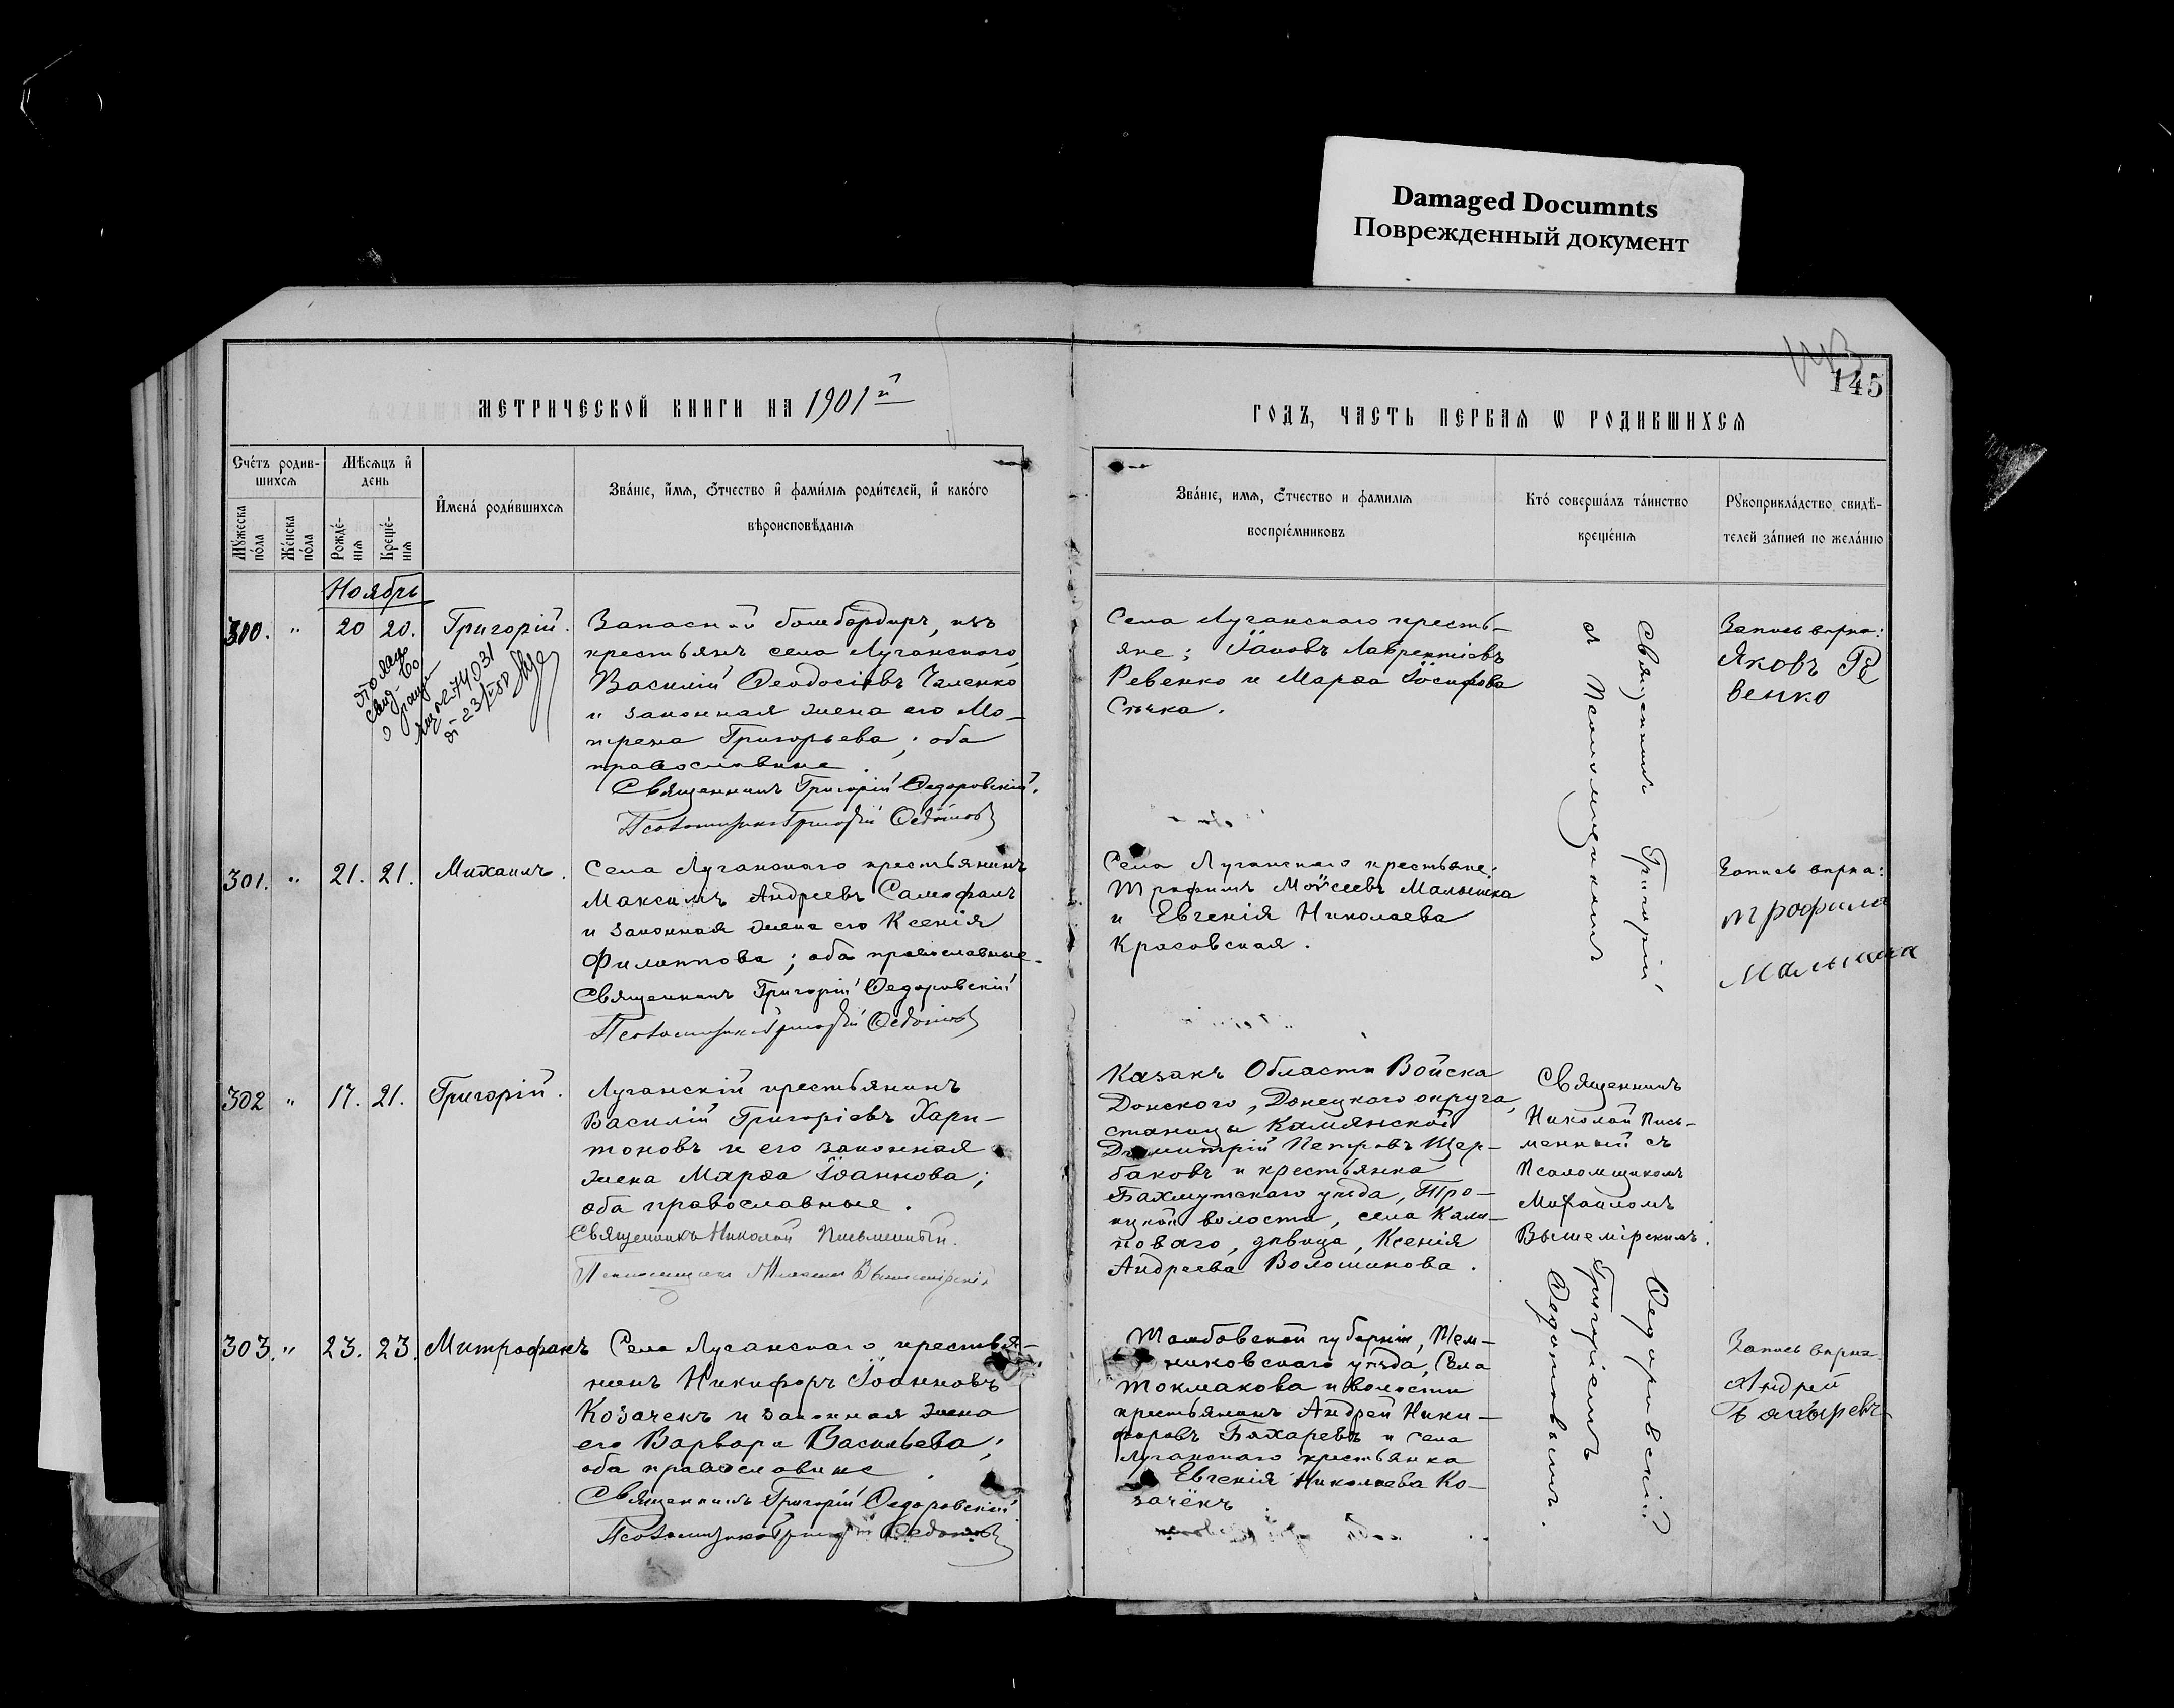 Damaged Documnts
Поврежденный документ
145
МЕТРИЧЕСКОЙ КНИГИ НА 1901й
ГОДЪ, ЧАСТЬ ПЕРВАЯ Ѡ РОДИВШИХСЯ
Счетъ родив-
шихся
Мужеска пола
Женска пола
Мѣсяцъ и
день
Рожде-
нія
Креще-
нія
Имена родившихся
Званіе, имя, отчество и фамилія родителей, и какого
вѣроисповѣданія
Званіе, имя, отчество и фамилія
воспріемниковъ
Кто совершалъ таинство
крещенія
Рукоприкладство свидѣ-
телей записи по желанію
Ноябрь
300. " 20 20. Григорій.
Запасный бомбардиръ, изъ
крестьянъ села Луганскаго
Василій Ѳеодосіевъ Чаленко
и законная жена его Мо-
трена Григорьева; оба
православные.
Священникъ Григорій Ѳедоровскій.
Псаломщикъ Григорій Ѳедотовъ
Села Луганскаго кресть-
яне: Іаковъ Лаврентіевъ
Ревенко и Марѳа Іосифова
Запись вѣрна:
Яковъ Ре
венко
301. " 21. 21. Михаилъ.
Села Луганскаго крестьянинъ
Максимъ Андреевъ
и законная жена его Ксенія
Филиппова; оба православные.
Священникъ Григорій Ѳедоровскій
Псаломщикъ Григорій Ѳедотовъ
Села Луганскаго крестьяне:
Трофимъ Моѵсеевъ Малышка
и Евгенія Николаева
Красовская.
Запись вѣрна:
Трофимъ
Малышка
Священникъ Григорій Ѳедоровскій
съ Псаломщикомъ
Григоріемъ
Ѳедотовымъ.
302 " 17. 21. Григорій.
Луганскій крестьянинъ
Василій Григоріевъ Хари-
тоновъ и его законная
жена Марѳа Іоаннова;
оба православные.
Священникъ Николай Письменный.
Псаломщикъ Михаилъ Вышемірскій
Казакъ Области Войска
Донского, Донецкаго округа,
станицы Каменской
Димитрій Петровъ Щер-
баковъ и крестьянка
Бахмутскаго уѣзда, Тро-
ицкой волости, села Кали-
новаго, дѣвица, Ксенія
Андреева Волошинова.
Священникъ
Николай Пись-
менный съ
Псаломщикомъ
Михаиломъ
Вышемірскимъ.
303. " 23. 23. Митрофанъ
Села Луганскаго крестья-
нинъ Никифоръ Іоанновъ
Козачекъ и законная жена
его Варвара Васильева;
оба православные.
Священникъ Григорій Ѳедоровскій
Псаломщикъ Григорій Ѳедотовъ
Тамбовской губерніи, Тем-
никовскаго уѣзда, Села
Токмакова и волости
крестьянинъ Андрей Ники-
форовъ Бахаревъ и села
Луганскаго крестьянка
Евгенія Николаева Ко-
зачёкъ.
Запись вѣрна
Андрей
Бахыревъ